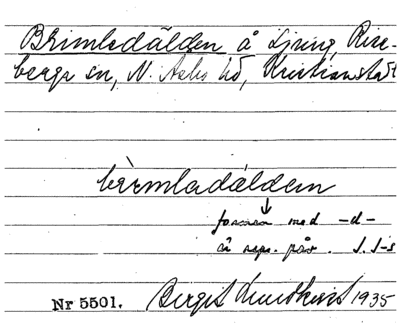 Brimledälden å Ljung, Rise-
berga sn, N. Åsbo hd, Kristianstads
bèrmladálden
formen med -d-
å
Nr 5501. Birgit Lundkvist 1935